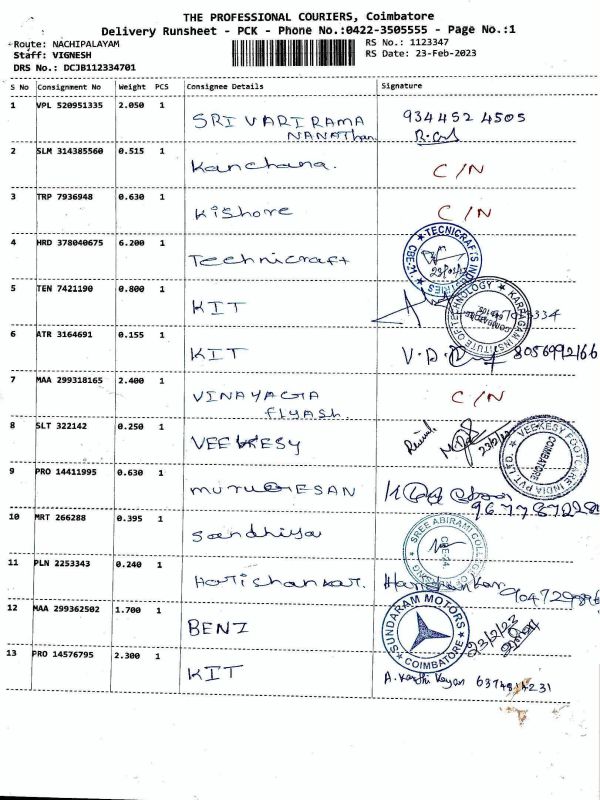 THE PROFESSIONAL COURIERS, Coimbatore
Delivery Runsheet - PCK - Phone No.:0422-3505555 - Page No.:1
Route: NACHIPALAYAM RS No.: 1123347
Staff: VIGNESH RS Date: 23-Feb-2023
DRS No.: DCJB112334701
S No Consignment No Weight PCS Consignee Details Signature
1 VPL 520951335 2.050 1 SRI VARI RAMA 934452 4505
NANATHAN
2 SLM 314385560 0.515 1 Kanchana. C/N
3 TRP 7936948 0.630 1 Kishore C/N
4 HRD 378040675 6.200 1 Technicraft
★ TECNICRAFTS INDUSTRIES ★ CBE-21
5 TEN 7421190 0.800 1 KIT
KARPAGAM INSTITUTE OF TECHNOLOGY ★
6 ATR 3164691 0.155 1 KIT 8056992166
7 MAA 299318165 2.400 1 VINAYAGA C/N
Flyash.
8 SLT 322142 0.250 1 VEEKESY 23/2/23
★ VEEKESY FOOTCARE INDIA PVT LTD. COIMBATORE
9 PRO 14411995 0.630 1 MURUGESAN
10 MRT 266288 0.395 1 Sandhiya
SREE ABIRAMI COLLEGE OF CBE-24.
11 PLN 2253343 0.240 1 Harishankar. Harishankar
12 MAA 299362502 1.700 1 BENZ 23/2/23
SUNDARAM MOTORS ★ COIMBATORE ★
13 PRO 14576795 2.300 1 KIT A. Karthi Keyan